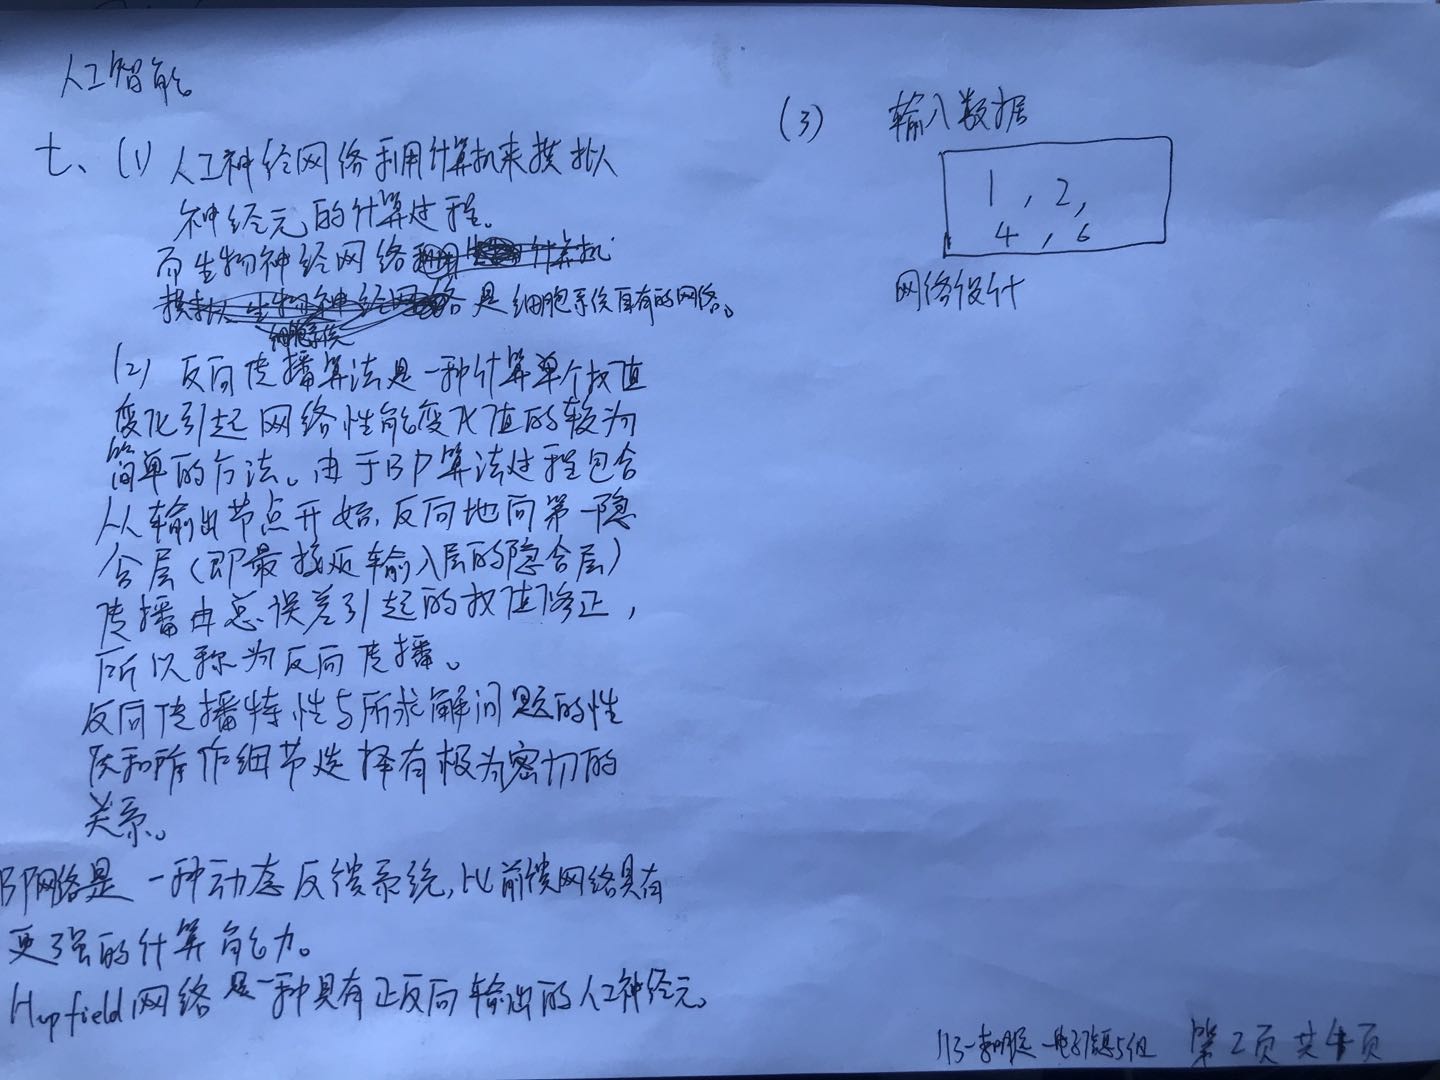 人工智能
七、(1) 人工神经网络利用计算机来模拟
神经元的计算过程。
而生物神经网络
是细胞手段自有的网络。
(2) 反向传播算法是一种计算单个权值
变化引起网络性能变化值的较为
简单的方法。由于BP算法过程包含
从输出节点开始,反向地向第一隐
含层(即最接近输入层的隐含层)
传播由总误差引起的权值修正,
所以称为反向传播。
反向传播特性与所求解问题的性
质和所作细节选择有极为密切的
关系。
网络是一种动态反馈系统,比前馈网络具有
更强的计算能力。
Hopfield网络是一种具有正反向输出的人工神经元。
(3) 输入数据
1, 2,
4, 6
网络设计
第2页 共4页